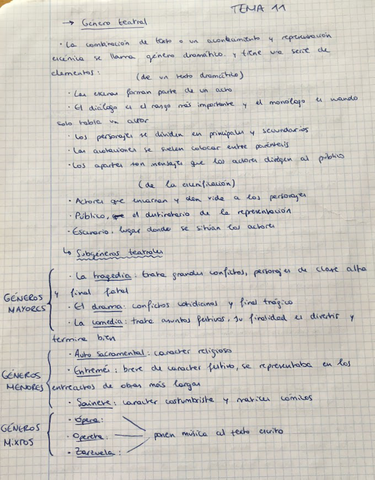 TEMA 11
→ Género teatral
· La combinación de texto o un acontecimiento y representación
escénica se llama género dramático y tiene una serie de
elementos: (de un texto dramático)
· Las escenas forman parte de un acto
· El diálogo es el rasgo más importante y el monólogo es cuando
solo habla un actor
· Los personajes se dividen en principales y secundarios
· Las acotaciones se suelen colocar entre paréntesis
· Los apartes son mensajes que los actores dirigen al público
(de la escenificación)
· Actores que encarnan y dan vida a los personajes
· Público, el destinatario de la representación
· Escenario, lugar donde se sitúan los actores
↳ Subgéneros teatrales
GÉNEROS MAYORES
· La tragedia: trata grandes conflictos, personajes de clase alta
y final fatal
· El drama: conflictos cotidianos y final trágico
· La comedia: trata asuntos festivos, su finalidad es divertir y
termina bien
GÉNEROS MENORES
· Auto sacramental: carácter religioso
· Entremés: breve de carácter festivo, se representaba en los
entreactos de obras más largas
· Sainete: carácter costumbrista y matices cómicos
GÉNEROS MIXTOS
· Ópera:
· Opereta: ponen música al texto escrito
· Zarzuela: